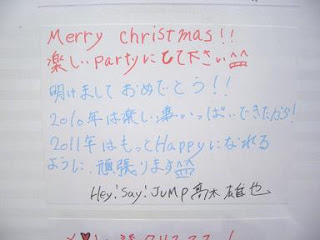 Merry christmas!!
楽しいpartyにして下さい
明けましておめでとう!!
2010年は楽しい事いっぱいできたから!
2011年はもっとHappyになれる
ように、頑張ります
Hey!Say!JUMP 髙木雄也